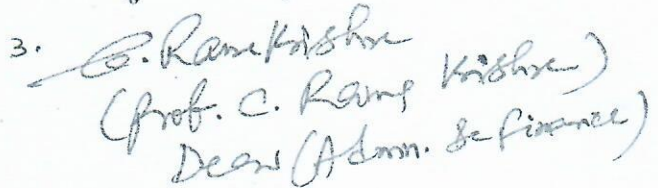 3. C. Rama Krishna
(Prof. C. Rama Krishna)
Dean (Admn. & Finance)